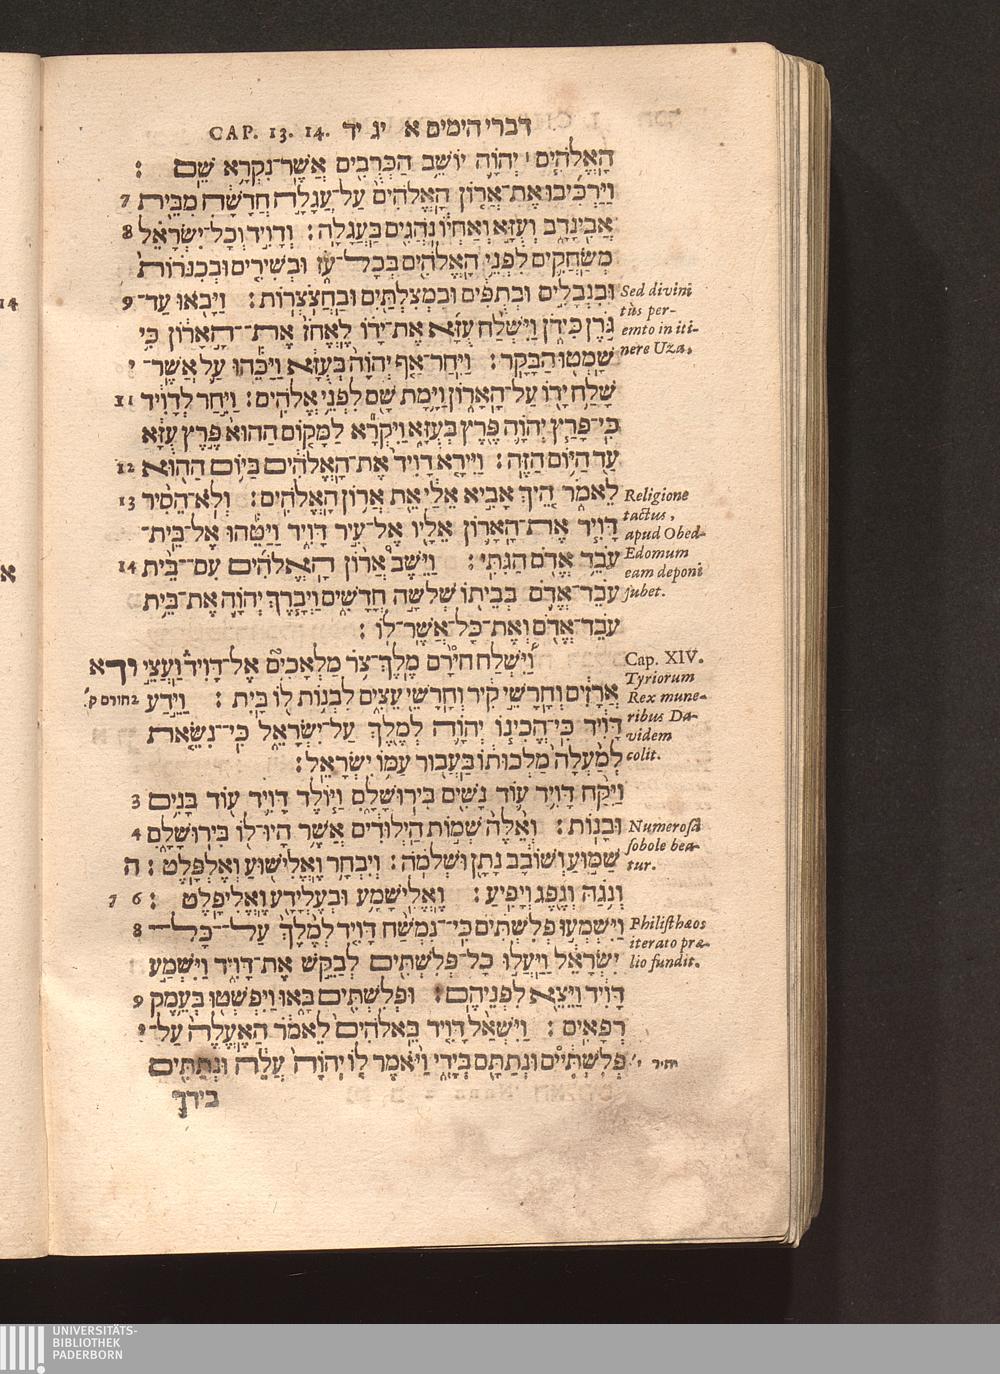 CAP. 13. 14. דברי הימים א יג יד
הָאֱלֹהִים ׀ יְהוָֹה יוֹשֵׁב הַכְּרֻבִים אֲשֶׁר־נִקְרָא שֵׁם :
וַיַּרְכִּיבוּ אֶת־אֲרוֹן הָאֱלֹהִים עַל־עֲגָלָה חֲדָשָׁה מִבֵּית 7
אֲבִינָדָב וְעֻזָּא וְאַחְיוֹ נֹהֲגִים בַּעֲגָלָה : וְדָוִיד וְכָל־יִשְׂרָאֵל 8
מְשַׂחֲקִים לִפְנֵי הָאֱלֹהִים בְּכָל־עֹז וּבְשִׁירִים וּבְכִנֹּרוֹת
וּבִנְבָלִים וּבְתֻפִּים וּבִמְצִלְתַּיִם וּבַחֲצֹצְרוֹת : וַיָּבֹאוּ עַד־ 9
גֹּרֶן כִּידֹן וַיִּשְׁלַח עֻזָּא אֶת־יָדוֹ לֶאֱחֹז אֶת־הָאָרוֹן כִּי
שָׁמְטוּ הַבָּקָר : וַיִּחַר־אַף יְהוָֹה בְּעֻזָּא וַיַּכֵּהוּ עַל אֲשֶׁר־ י
שָׁלַח יָדוֹ עַל־הָאָרוֹן וַיָּמָת שָׁם לִפְנֵי אֱלֹהִים : וַיִּחַר לְדָוִיד 11
כִּי־פָרַץ יְהוָֹה פֶּרֶץ בְּעֻזָּא וַיִּקְרָא לַמָּקוֹם הַהוּא פֶּרֶץ עֻזָּא
עַד הַיּוֹם הַזֶּה : וַיִּירָא דָוִיד אֶת־הָאֱלֹהִים בַּיּוֹם הַהוּא 12
לֵאמֹר הֵיךְ אָבִיא אֵלַי אֵת אֲרוֹן הָאֱלֹהִים : וְלֹא־הֵסִיר 13
דָּוִיד אֶת־הָאָרוֹן אֵלָיו אֶל־עִיר דָּוִיד וַיַּטֵּהוּ אֶל־בֵּית־
עֹבֵד אֱדֹם הַגִּתִּי : וַיֵּשֶׁב אֲרוֹן הָאֱלֹהִים עִם־בֵּית 14
עֹבֵד־אֱדֹם בְּבֵיתוֹ שְׁלֹשָׁה חֳדָשִׁים וַיְבָרֶךְ יְהוָֹה אֶת־בֵּית
עֹבֵד־אֱדֹם וְאֶת־כָּל־אֲשֶׁר־לוֹ :
וַיִּשְׁלַח חִירָם מֶלֶךְ־צֹר מַלְאָכִים אֶל־דָּוִיד וַעֲצֵי יד א
אֲרָזִים וְחָרָשֵׁי קִיר וְחָרָשֵׁי עֵצִים לִבְנוֹת לוֹ בָּיִת : וַיֵּדַע 2 חורם ק'
דָּוִיד כִּי־הֱכִינוֹ יְהוָֹה לְמֶלֶךְ עַל־יִשְׂרָאֵל כִּי־נִשֵּׂאת
לְמַעְלָה מַלְכוּתוֹ בַּעֲבוּר עַמּוֹ יִשְׂרָאֵל :
וַיִּקַּח דָּוִיד עוֹד נָשִׁים בִּירוּשָׁלָםִ וַיּוֹלֶד דָּוִיד עוֹד בָּנִים 3
וּבָנוֹת : וְאֵלֶּה שְׁמוֹת הַיְלוּדִים אֲשֶׁר הָיוּ־לוֹ בִּירוּשָׁלָםִ 4
שַׁמּוּעַ וְשׁוֹבָב נָתָן וּשְׁלֹמֹה : וְיִבְחָר וֶאֱלִישׁוּעַ וְאֶלְפָּלֶט : ה
וְנֹגַהּ וְנֶפֶג וְיָפִיעַ : וֶאֱלִישָׁמָע וּבְעֶלְיָדָע וֶאֱלִיפָלֶט : 6 7
וַיִּשְׁמְעוּ פְלִשְׁתִּים כִּי־נִמְשַׁח דָּוִיד לְמֶלֶךְ עַל־כָּל־ 8
יִשְׂרָאֵל וַיַּעֲלוּ כָל־פְּלִשְׁתִּים לְבַקֵּשׁ אֶת־דָּוִיד וַיִּשְׁמַע
דָּוִיד וַיֵּצֵא לִפְנֵיהֶם : וּפְלִשְׁתִּים בָּאוּ וַיִּפְשְׁטוּ בְּעֵמֶק 9
רְפָאִים : וַיִּשְׁאַל דָּוִיד בֵּאלֹהִים לֵאמֹר הַאֶעֱלֶה עַל־ י
פְּלִשְׁתִּיִּים וּנְתַתָּם בְּיָדִי וַיֹּאמֶר לוֹ יְהוָֹה עֲלֵה וּנְתַתִּים
בידך
Sed divini
tùs per-
emto in iti-
nere Uza,
Religione
tactus,
apud Obed-
Edomum
eam deponi
jubet.
Cap. XIV.
Tyriorum
Rex mune-
ribus Da-
videm
colit.
Numerosâ
sobole bea-
tur.
Philisthæos
iterato præ-
lio fundit.
14
א
UNIVERSITÄTS-
BIBLIOTHEK
PADERBORN